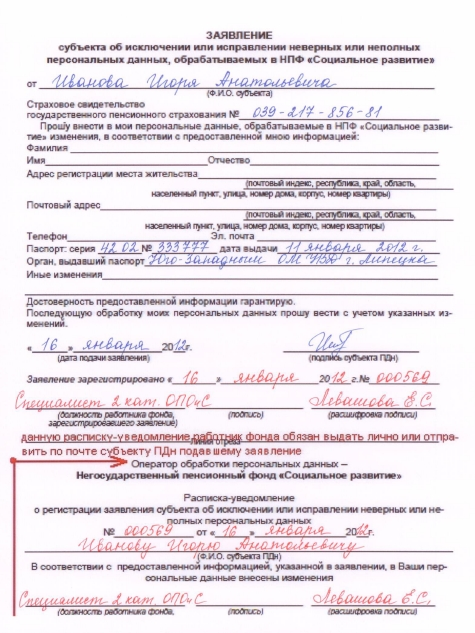 ЗАЯВЛЕНИЕ
субъекта об исключении или исправлении неверных или неполных
персональных данных, обрабатываемых в НПФ «Социальное развитие»
от Иванова Игоря Анатольевича
(Ф.И.О. субъекта)
Страховое свидетельство
государственного пенсионного страхования № 039-217-856-81
Прошу внести в мои персональные данные, обрабатываемые в НПФ «Социальное разви-
тие» изменения, в соответствии с предоставленной мною информацией:
Фамилия
Имя Отчество
Адрес регистрации места жительства
(почтовый индекс, республика, край, область,
населенный пункт, улица, номер дома, корпус, номер квартиры)
Почтовый адрес
(почтовый индекс, республика, край, область,
населенный пункт, улица, номер дома, корпус, номер квартиры)
Телефон Эл. почта
Паспорт: серия 42 02 № 333777 дата выдачи 11 января 2012 г.
Орган, выдавший паспорт Юго-Западный ОМ УВД г. Липецка
Иные изменения
Достоверность предоставленной информации гарантирую.
Последующую обработку моих персональных данных прошу вести с учетом указанных из-
менений.
« 16 » января 2012г.
(дата подачи заявления) (подпись субъекта ПДн)
Заявление зарегистрировано « 16 » января 2012 г.№ 000569
Специалист 2 кат. ОПОиС Левашова Е.С.
(должность работника фонда, (подпись) (расшифровка подписи)
зарегистрировавшего заявление)
Линия отреза
данную расписку-уведомление работник фонда обязан выдать лично или отпра-
вить по почте субъекту ПДн подавшему заявление
Оператор обработки персональных данных –
Негосударственный пенсионный фонд «Социальное развитие»
Расписка-уведомление
о регистрации заявления субъекта об исключении или исправлении неверных или не-
полных персональных данных
№ 000569 от « 16 » января 2012г.
Иванову Игорю Анатольевичу
(Ф.И.О. субъекта ПДн)
В соответствии с предоставленной информацией, указанной в заявлении, в Ваши пер-
сональные данные внесены изменения
Специалист 2 кат. ОПОиС Левашова Е.С.
(должность работника фонда, (подпись) (расшифровка подписи)